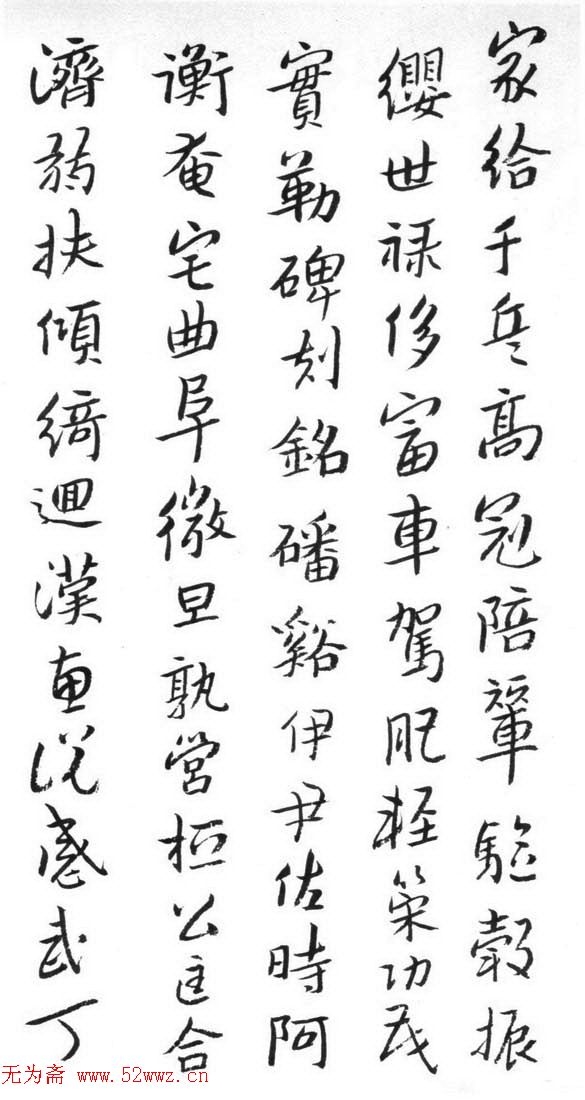 家給千兵高冠陪輦驅轂振
纓世祿侈富車駕肥輕策功茂
實勒碑刻銘磻谿伊尹佐時阿
衡奄宅曲阜微旦孰營桓公匡合
濟弱扶傾綺迴漢惠說感武丁
无为斋 www.52wwz.cn